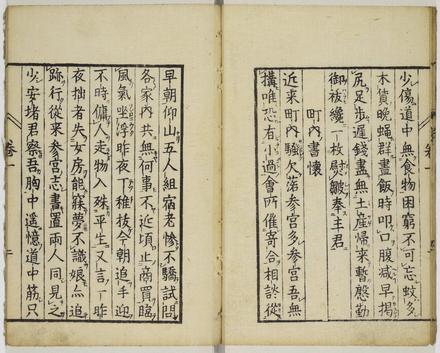 少傷道中無食物困窮不可忘蚊多
木賃晩蠅群晝飯時叩口腹減早掲
尻足歩遲錢盡無土産帰来暫慇勤
御祓纔一枚熨皺奉主君
町内書懷
近来町内騷欠落参宮多参宮吾無
搆唯恐有小過會所催寄合相談從
早朝仰山五人組宿老慘不驕試問
各家内共無何事不近頃止商買臨
風氣坐浮昨夜丁稚拔今朝追手迎
不時傭人走物入殊平生又言一昨
夜拙者失女房能寐夢不識娘亦追
跡行從来参宮志書置兩人同見之
少安堵君察吾胸中遥憶道中筋只
卷一